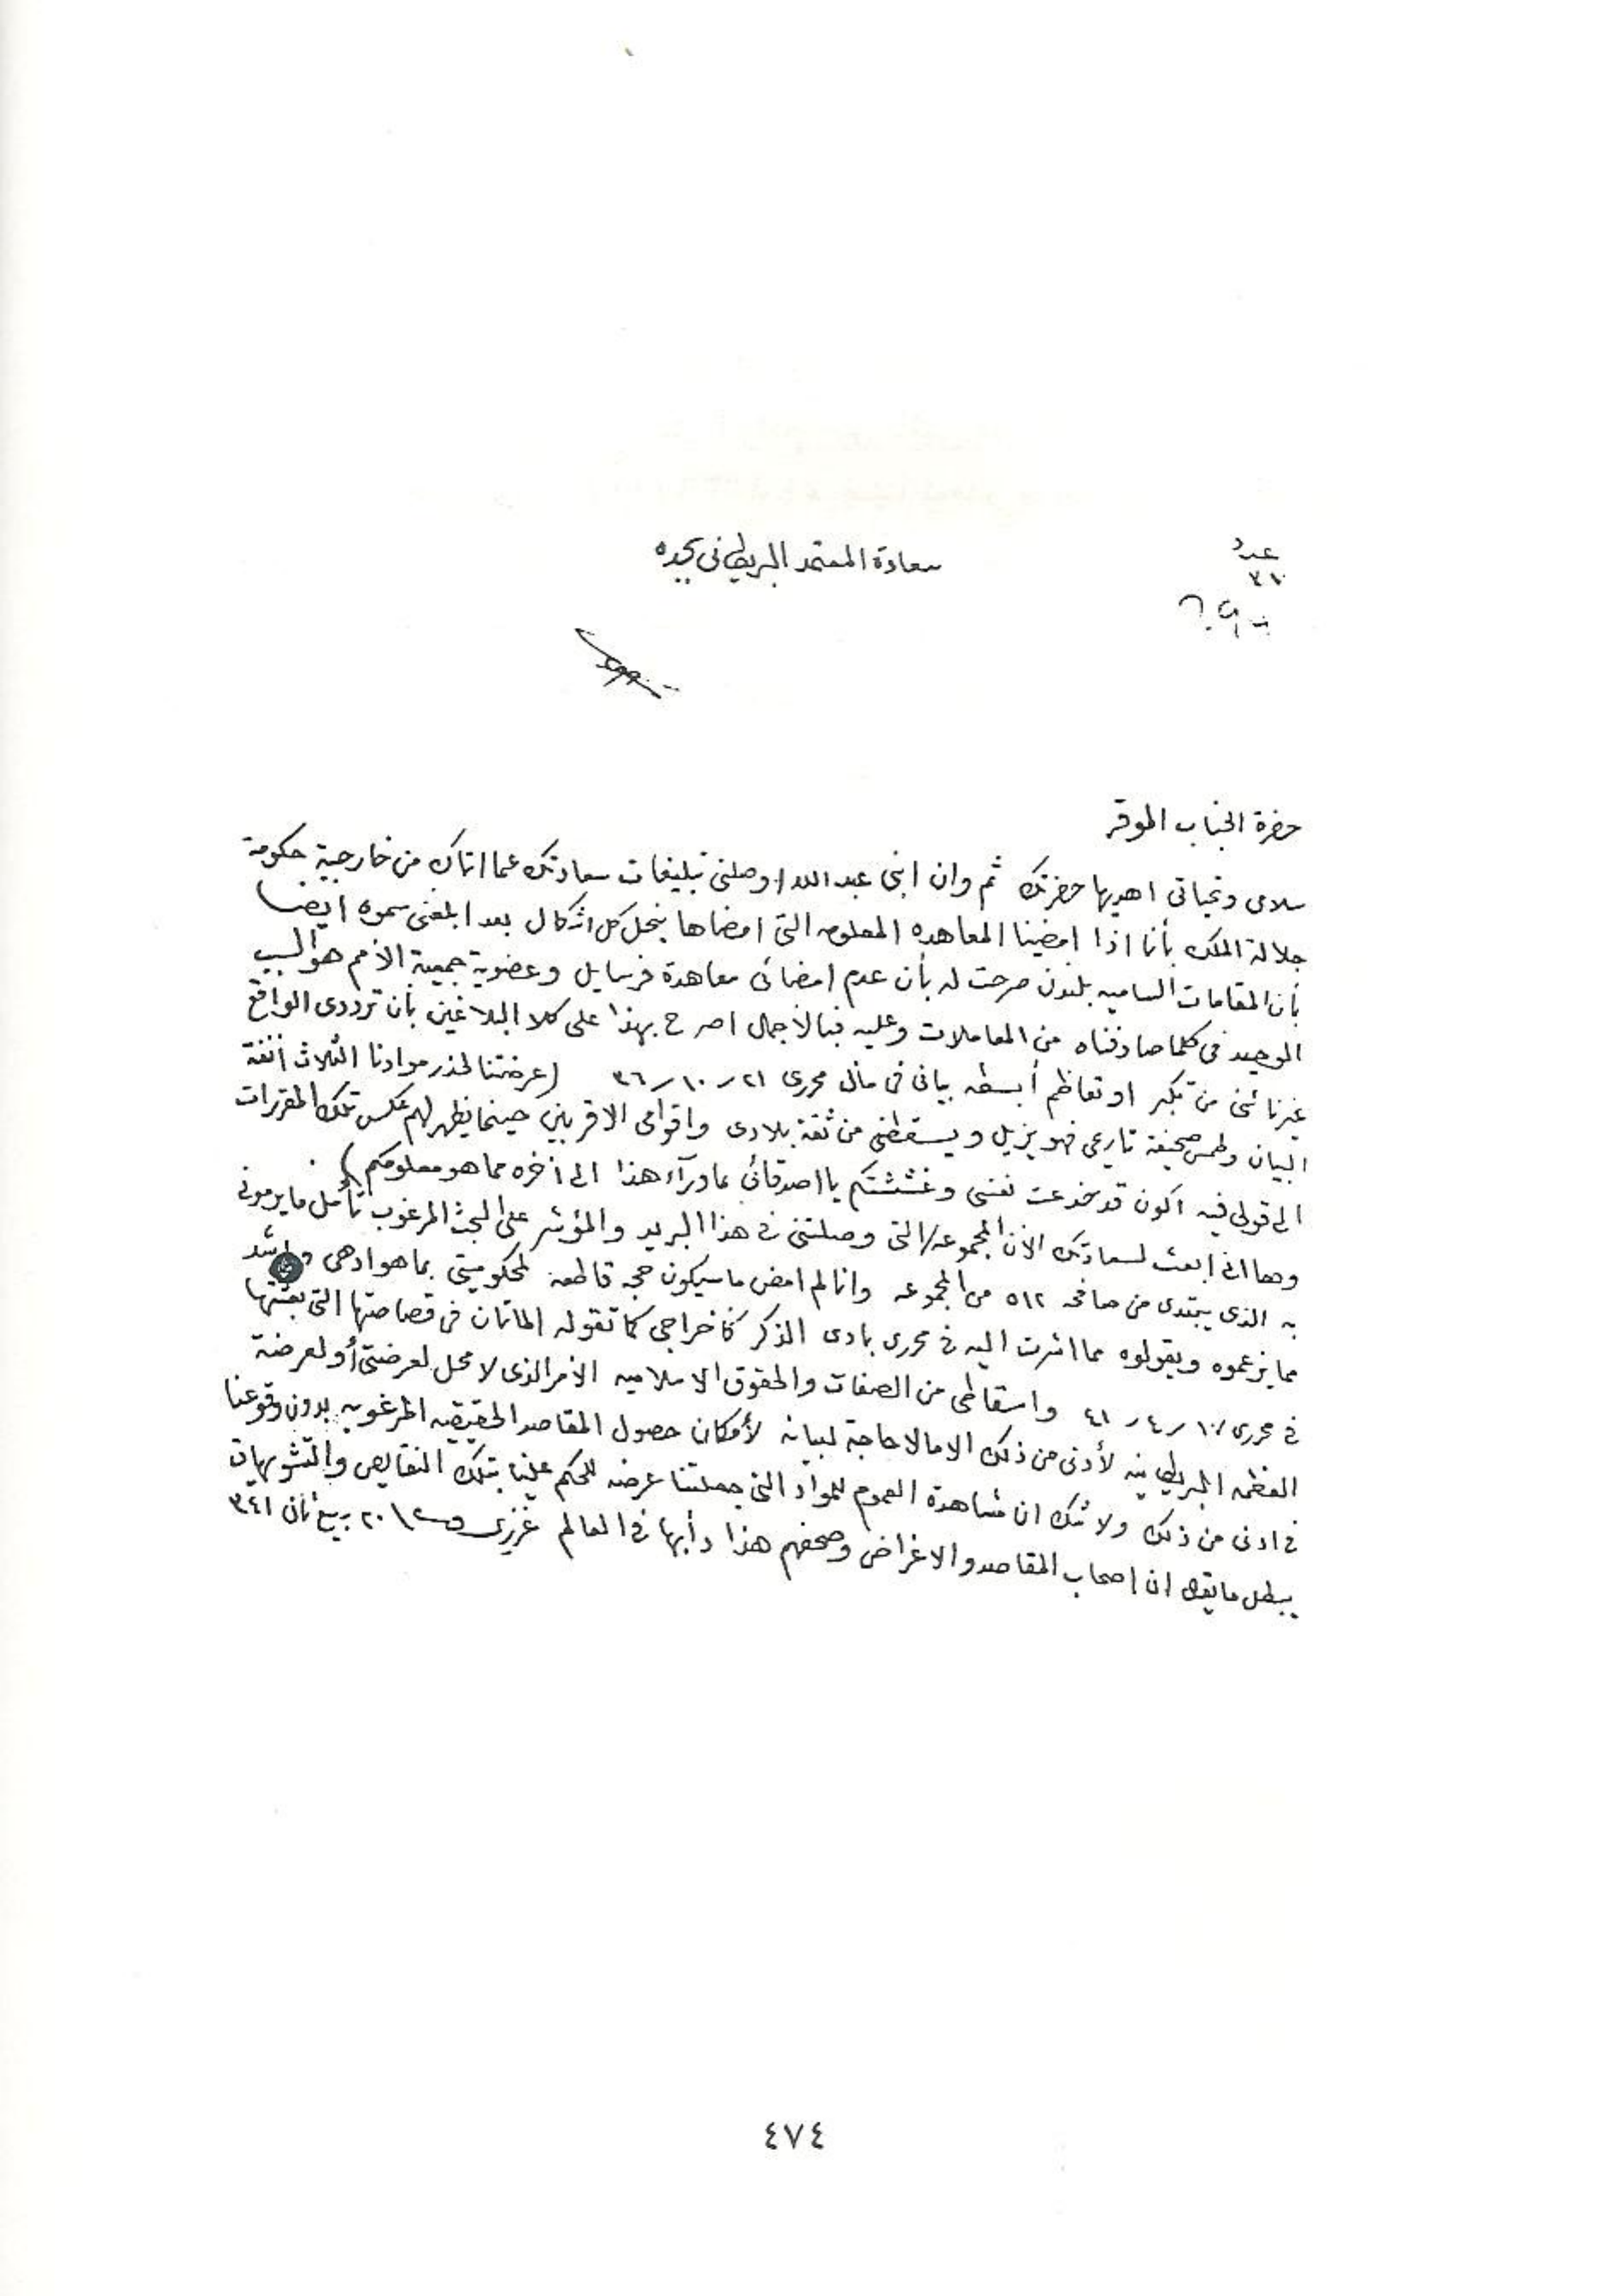 سعادة المعتمد البريطاني بجده
عدد
حضرة الجناب الموقر
سلامى وتحياتى اهديها حضرتك ثم وان ابنى عبد الله اوصلنى تبليغات سعادتك عما اتاك من خارجية حكومة
جلالة الملك بأنا اذا امضينا المعاهده المعلومه التى امضاها ينحل كل اشكال بعد ابلغنى سموه ايضا
بأن المقامات الساميه بلندن صرحت له بأن عدم امضائى معاهدة فرسايل وعضوية جمعية الأمم هو السبب
الوحيد فى كلما صادفناه من المعاملات وعليه فبالأجمال اصرح بهذا على كلا البلاغين بأن ترددى الواقع
غير ناشئ من تكبر او تعاظم أبسطه بيانى فى مآل محررى ٢١ ـ ١٠ ـ ٣٦ (عرضتنا لحذر موادنا الثلاث أنفة
البيان وطمس صحيفة تاريخى فهو يزيل ويسقطنى من ثقة بلادى واقوامى الاقربين حينما يظهر لهم عكس تلك المقررات
الى قولى فيه اكون قد خدعت نفسى وغششتكم يا اصدقائى بما ورآء هذا الى أخره مما هو معلومكم) .
وها انى ابعث لسعادتك الأن المجموعه التى وصلتنى فى هذا البريد والمؤشر على البحث المرغوب تأمل ما يرمونى
به الذى يبتدى من صافحه ٥١٢ من المجموعه وانا لم امض ما سيكون حجه قاطعه لمحكوميتى بما هو ادهى واشد
مما يزعموه ويقولوه مما اشرت اليه فى محررى بادى الذكر كأخراجى كما تقوله الماتان فى قصاصتها التى بعثتها
فى محررى ١٠ ـ ٤ ـ ٤١ واسقاطى من الصفات والحقوق الاسلاميه الأمر الذى لا محل لعرضتى أو لعرضة
العظمه البريطانيه لأدنى من ذلك الامالا حاجة لبيانه لأمكان حصول المقاصد الحقيقيه المرغوبه بدون وقوعنا
فى ادنى من ذلك ولا شك ان مشاهدة العموم للمواد التى جعلتنا عرضه للحكم علينا بتلك النقايص والتشويهات
يبطل ما يقال ان اصحاب المقاصد والاغراض وصحفهم هذا دأبها فى العالم عزيزى ٢٠ ربيع ثان ٣٤١
٤٧٤